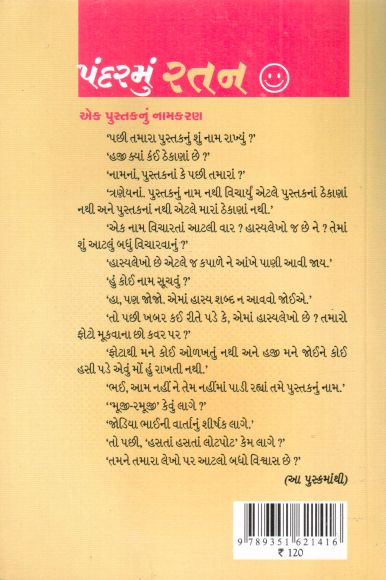 પંદરમું રતન
એક પુસ્તકનું નામકરણ
‘પછી તમારા પુસ્તકનું શું નામ રાખ્યું ?’
‘હજી ક્યાં કંઈ ઠેકાણાં છે ?’
‘નામનાં, પુસ્તકનાં કે પછી તમારાં ?’
‘ત્રણેયનાં. પુસ્તકનું નામ નથી વિચાર્યું એટલે પુસ્તકનાં ઠેકાણાં
નથી અને પુસ્તકનાં નથી એટલે મારાં ઠેકાણાં નથી.’
‘એક નામ વિચારતાં આટલી વાર ? હાસ્યલેખો જ છે ને ? તેમાં
શું આટલું બધું વિચારવાનું ?’
‘હાસ્યલેખો છે એટલે જ કપાળે ને આંખે પાણી આવી જાય.’
‘હું કોઈ નામ સૂચવું ?’
‘હા, પણ જોજો, એમાં હાસ્ય શબ્દ ન આવવો જોઈએ.’
‘તો પછી ખબર કઈ રીતે પડે કે, એમાં હાસ્યલેખો છે ? તમારો
ફોટો મૂકવાના છો કવર પર ?’
‘ફોટાથી મને કોઈ ઓળખતું નથી અને હજી મને જોઈને કોઈ
હસી પડે એવું મોં હું રાખતી નથી.’
‘ભઈ, આમ નહીં ને તેમ નહીંમાં પાડી રહ્યાં તમે પુસ્તકનું નામ.’
‘‘મૂજી-રમૂજી’ કેવું લાગે ?’
‘જોડિયા ભાઈની વાર્તાનું શીર્ષક લાગે.’
‘તો પછી, ‘હસતાં હસતાં લોટપોટ’ કેમ લાગે ?’
‘તમને તમારા લેખો પર આટલો બધો વિશ્વાસ છે ?’
(આ પુસ્કમાંથી)
9 789351 621416
₹ 120